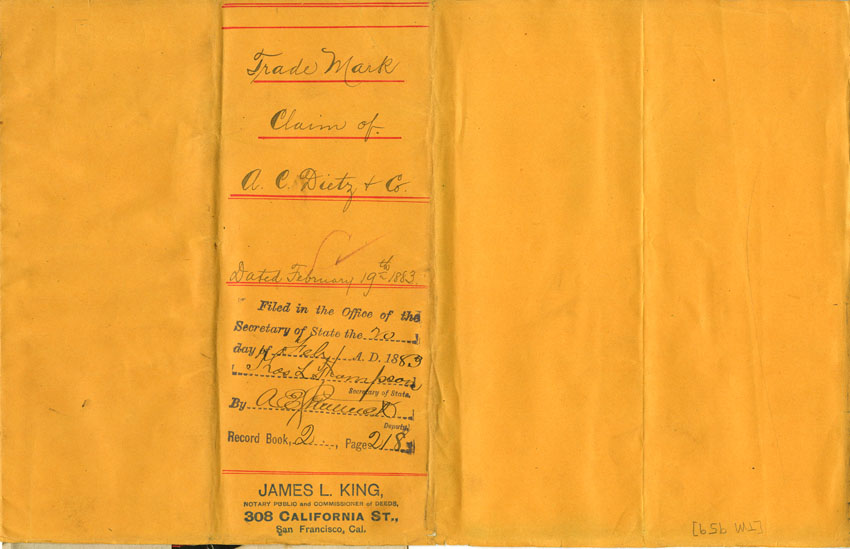 Trade Mark
Claim of
A. C. Dietz & Co.
Dated February 19th 1883.
Filed in the Office of the
Secretary of State the 20
day of Feby A. D. 1883
Thos L Thompson
Secretary of State.
By A E
Deputy.
Record Book, 2, Page 218
JAMES L. KING,
NOTARY PUBLIC and COMMISSIONER of DEEDS,
308 CALIFORNIA ST.,
San Francisco, Cal.
[TM 959]